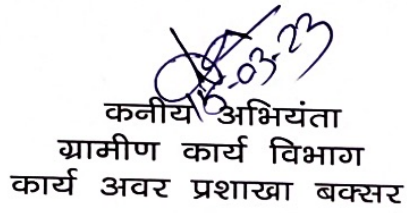 15-03-23
कनीय अभियंता
ग्रामीण कार्य विभाग
कार्य अवर प्रशाखा बक्सर